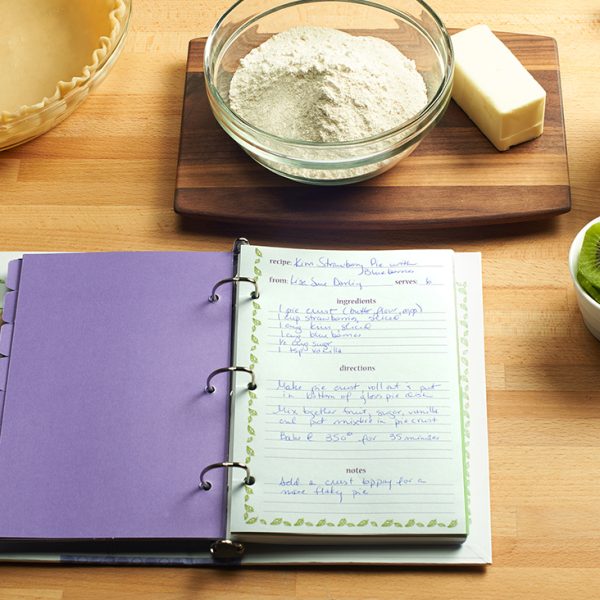 recipe: Kiwi Strawberry Pie with
Blueberries
from: Sue Darling serves: 6
ingredients
1 pie crust (butter, flour, egg)
1 cup strawberries, sliced
1 cup kiwi, sliced
1 cup blueberries
cup sugar
1 tsp vanilla
directions
Make pie crust roll out & put
in bottom of glass pie dish
Mix together fruit, sugar, vanilla
and put mixture in pie crust
Bake @ 350° for 35 minutes
notes
Add a crust topping for a
more flaky pie